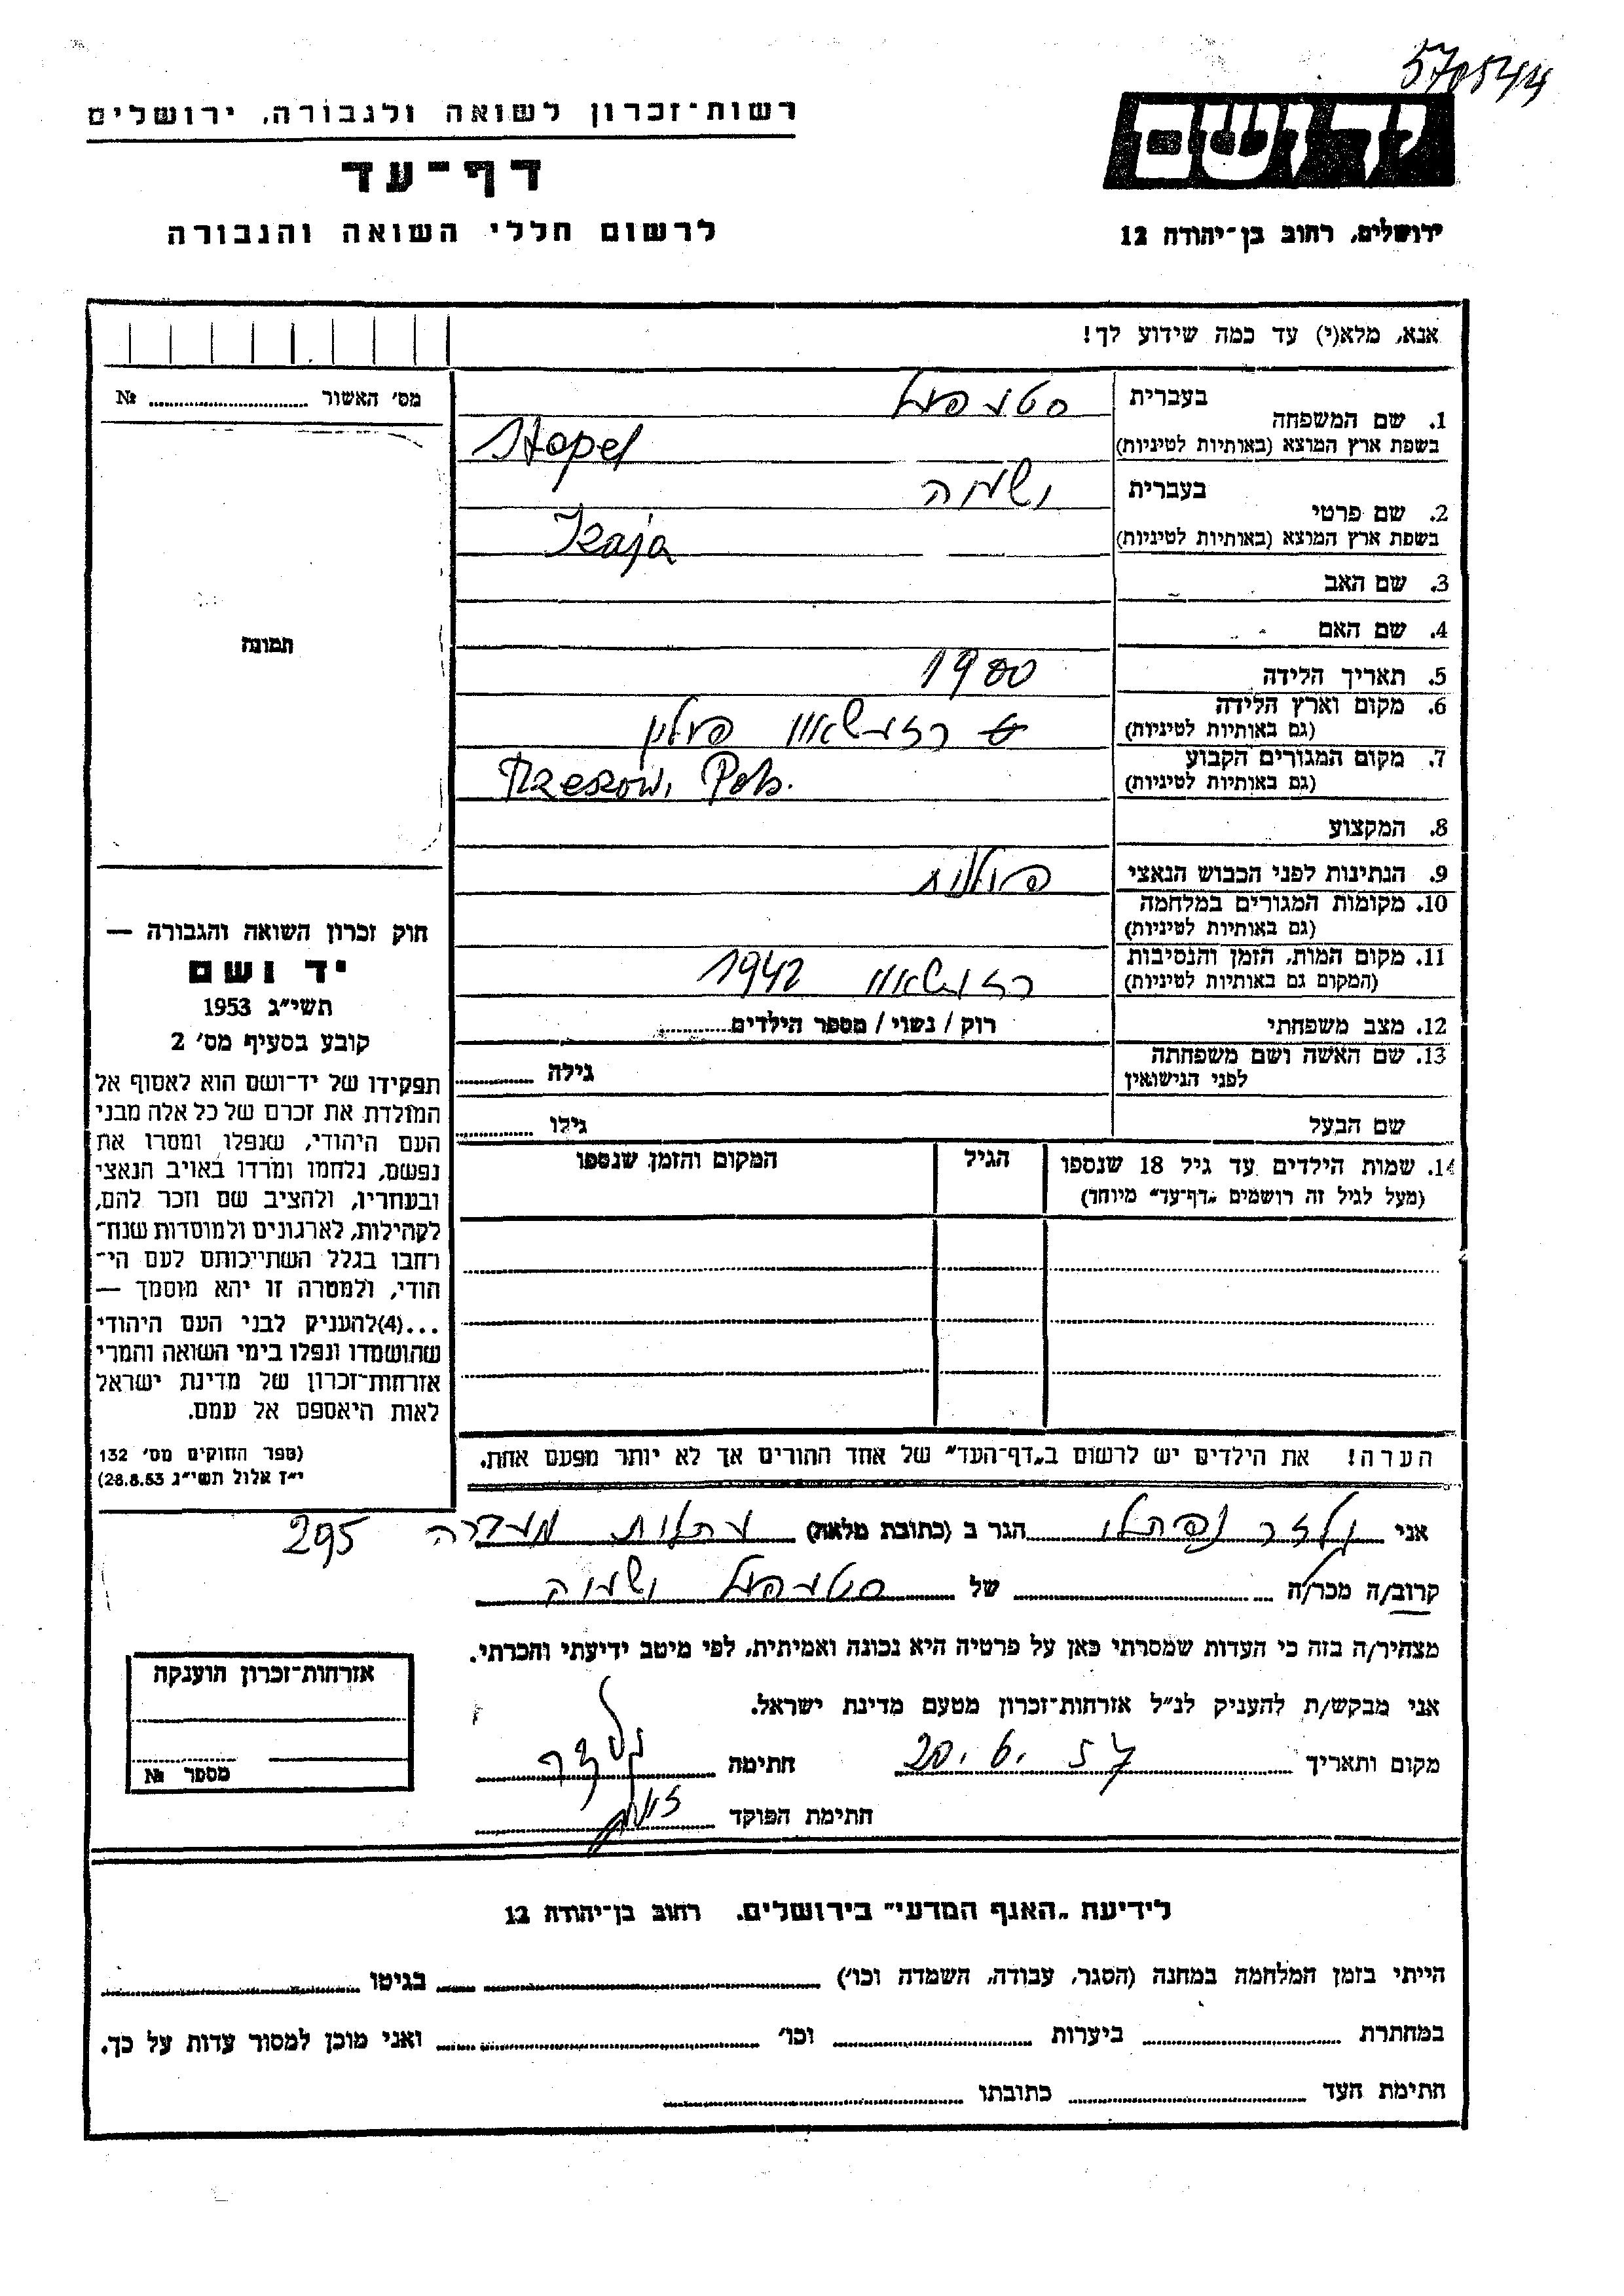 570544
רשות־זכרון לשואה ולגבורה, ירושלים
דף־עד
לרשום חללי השואה והגבורה
יד ושם
ירושלים, רחוב בן־יהודה 12
אנא, מלא(י) עד כמה שידוע לך!
מס׳ האשור № ........
תמונה
1. שם המשפחה
בעברית
בשפת ארץ המוצא (באותיות לטיניות)
Stopel
2. שם פרטי
בעברית ישעיה
בשפת ארץ המוצא (באותיות לטיניות)
Izaja
3. שם האב
4. שם האם
5. תאריך הלידה 1900
6. מקום וארץ הלידה
(גם באותיות לטיניות)
פולין
7. מקום המגורים הקבוע
(גם באותיות לטיניות)
Rzeszów, Pols.
8. המקצוע
9. הנתינות לפני הכבוש הנאצי פולנית
10. מקומות המגורים במלחמה
(גם באותיות לטיניות)
11. מקום המות, הזמן והנסיבות
(המקום גם באותיות לטיניות)
1942
12. מצב משפחתי רוק / נשוי / מספר הילדים........
13. שם האשה ושם משפחתה
לפני הנישואין
גילה ........
שם הבעל גילו ........
14. שמות הילדים עד גיל 18 שנספו
(מעל לגיל זה רושמים „דף־עד” מיוחד)
הגיל
המקום והזמן שנספו
הערה! את הילדים יש לרשום ב„דף־העד” של אחד ההורים אך לא יותר מפעם אחת.
חוק זכרון השואה והגבורה —
יד ושם
תשי״ג 1953
קובע בסעיף מס׳ 2
תפקידו של יד־ושם הוא לאסוף אל
המולדת את זכרם של כל אלה מבני
העם היהודי, שנפלו ומסרו את
נפשם, נלחמו ומרדו באויב הנאצי
ובעוזריו, ולהציב שם וזכר להם,
לקהילות, לארגונים ולמוסדות שנח־
רחבו בגלל השתייכותם לעם הי־
הודי, ולמטרה זו יהא מוסמך —
...(4)להעניק לבני העם היהודי
שהושמדו ונפלו בימי השואה והמרי
אזרחות־זכרון של מדינת ישראל
לאות היאספם אל עמם.
(ספר החוקים מס׳ 132
י״ז אלול תשי״ג 28.8.53)
אני נפתלי הגר ב (כתובת מלאה) 295
קרוב/ה מכר/ה ........ של ישעיה
מצהיר/ה בזה כי העדות שמסרתי כאן על פרטיה היא נכונה ואמיתית, לפי מיטב ידיעתי והכרתי.
אני מבקש/ת להעניק לנ״ל אזרחות־זכרון מטעם מדינת ישראל.
מקום ותאריך 20. 6. 57 חתימה
חתימת הפוקד
אזרחות־זכרון הוענקה
מספר №
לידיעת „האגף המדעי” בירושלים, רחוב בן־יהודה 12
הייתי בזמן המלחמה במחנה (הסגר, עבודה, השמדה וכו׳) ........ בגיטו ........
במחתרת ........ ביערות ........ וכו׳ ........ ואני מוכן למסור עדות על כך.
חתימת העד ........ כתובתו ........